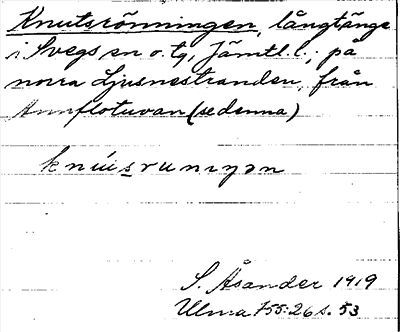 Knutsrönningen, långtänge
i Svegs sn o. tg, Jämtl. l.; på
norra Ljusnestranden, från
Annflotuvan (se denna)
S. Åsander 1919
Ulma 155:26 s. 53